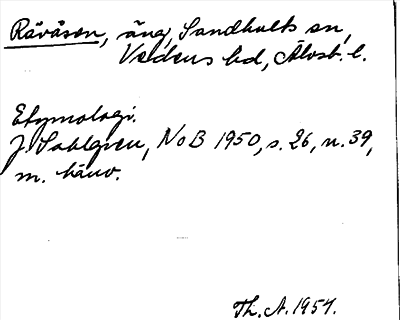 Rävåsen, äng, Sandhults sn,
Vedens hd, Älvsb. l.
Etymologi.
J. Sahlgren, NoB 1950, s. 26, n. 39,
m. hänv.
Th. A. 1957.